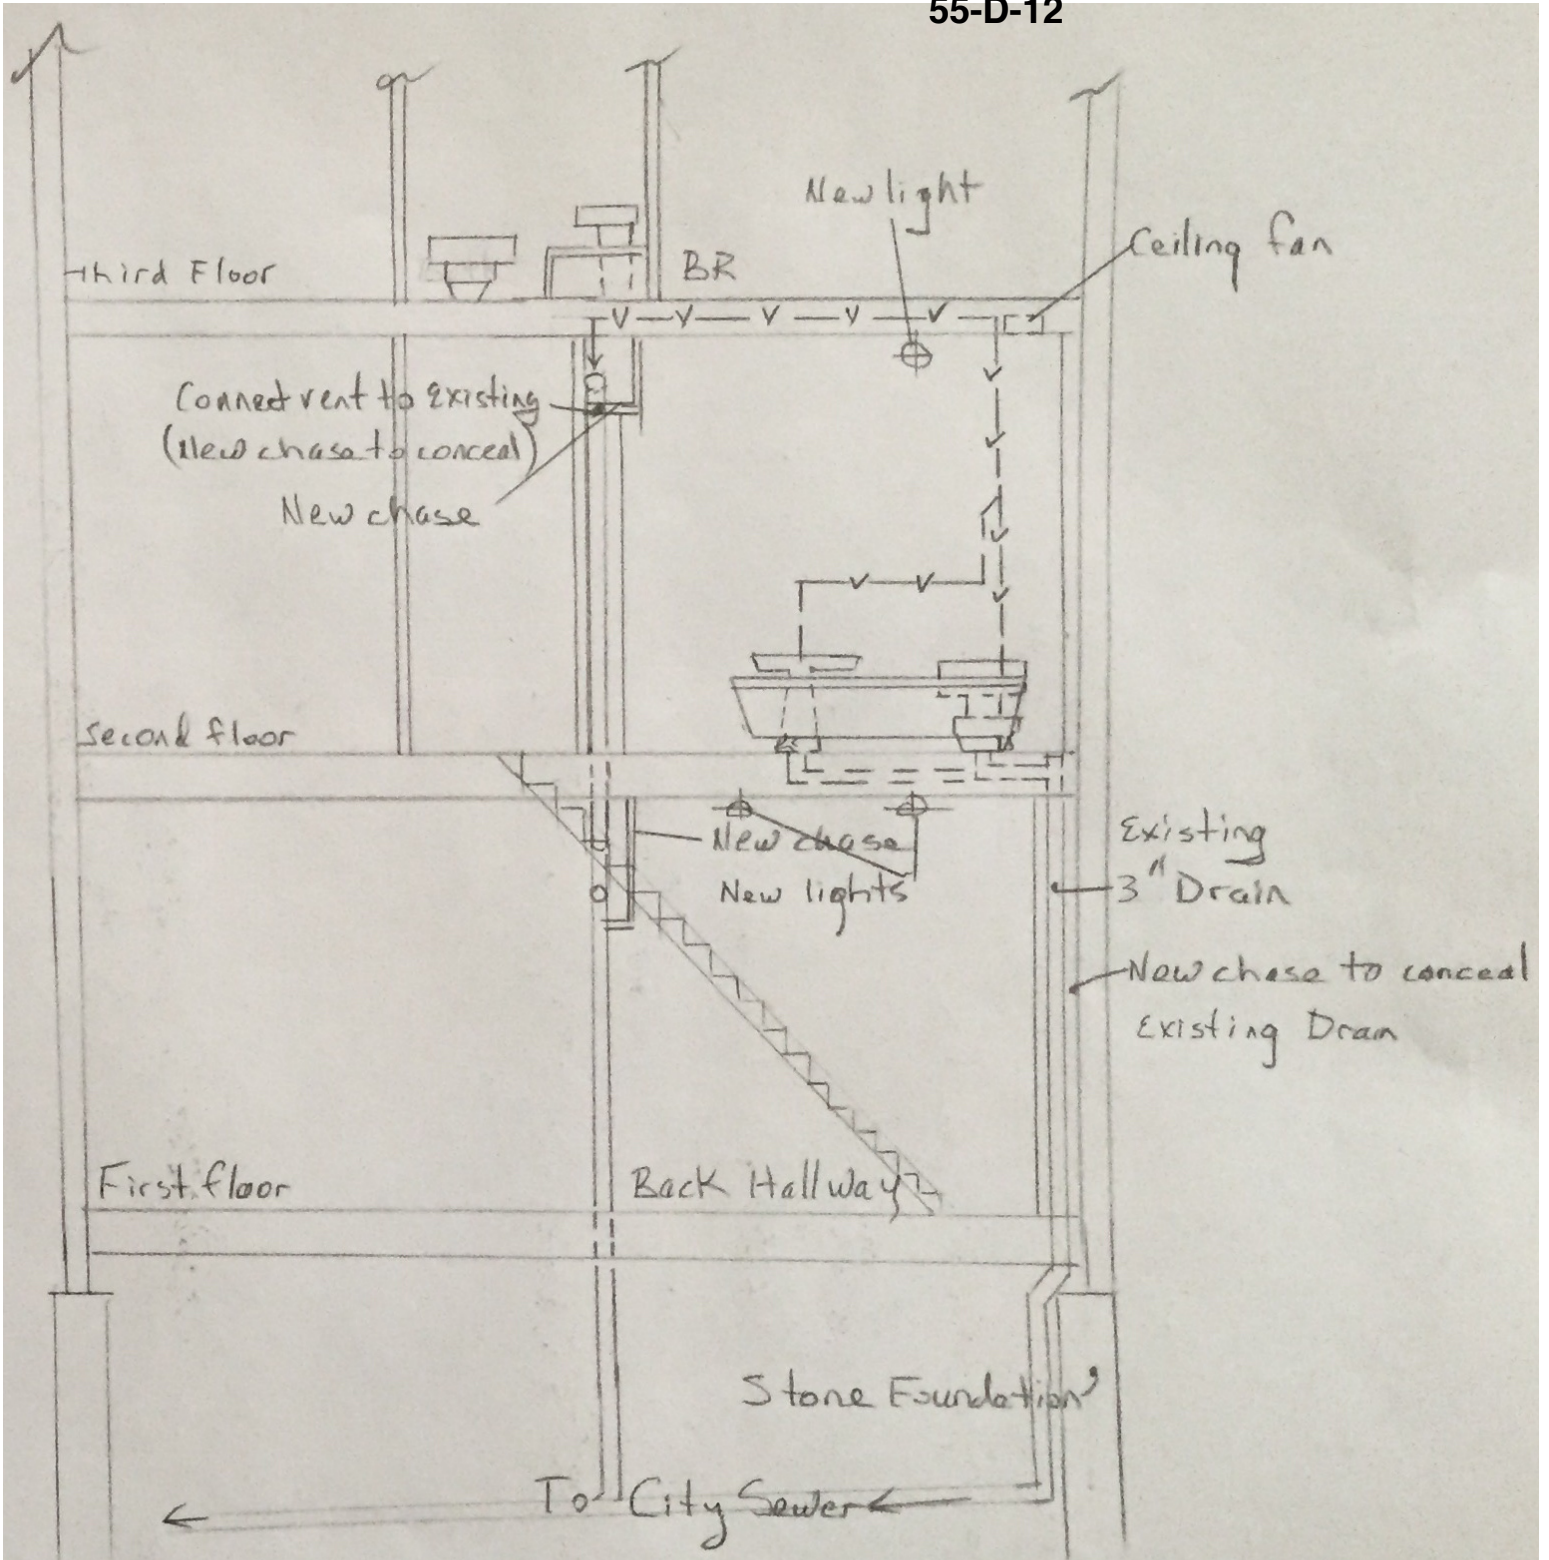 55-D-12
New light
Ceiling fan
Third Floor
BR
Connect vent to Existing
(New chase to conceal)
New chase
Second floor
New chase
New lights
Existing
3" Drain
New chase to conceal
Existing Drain
First floor
Back Hallway
Stone Foundation
To City Sewer